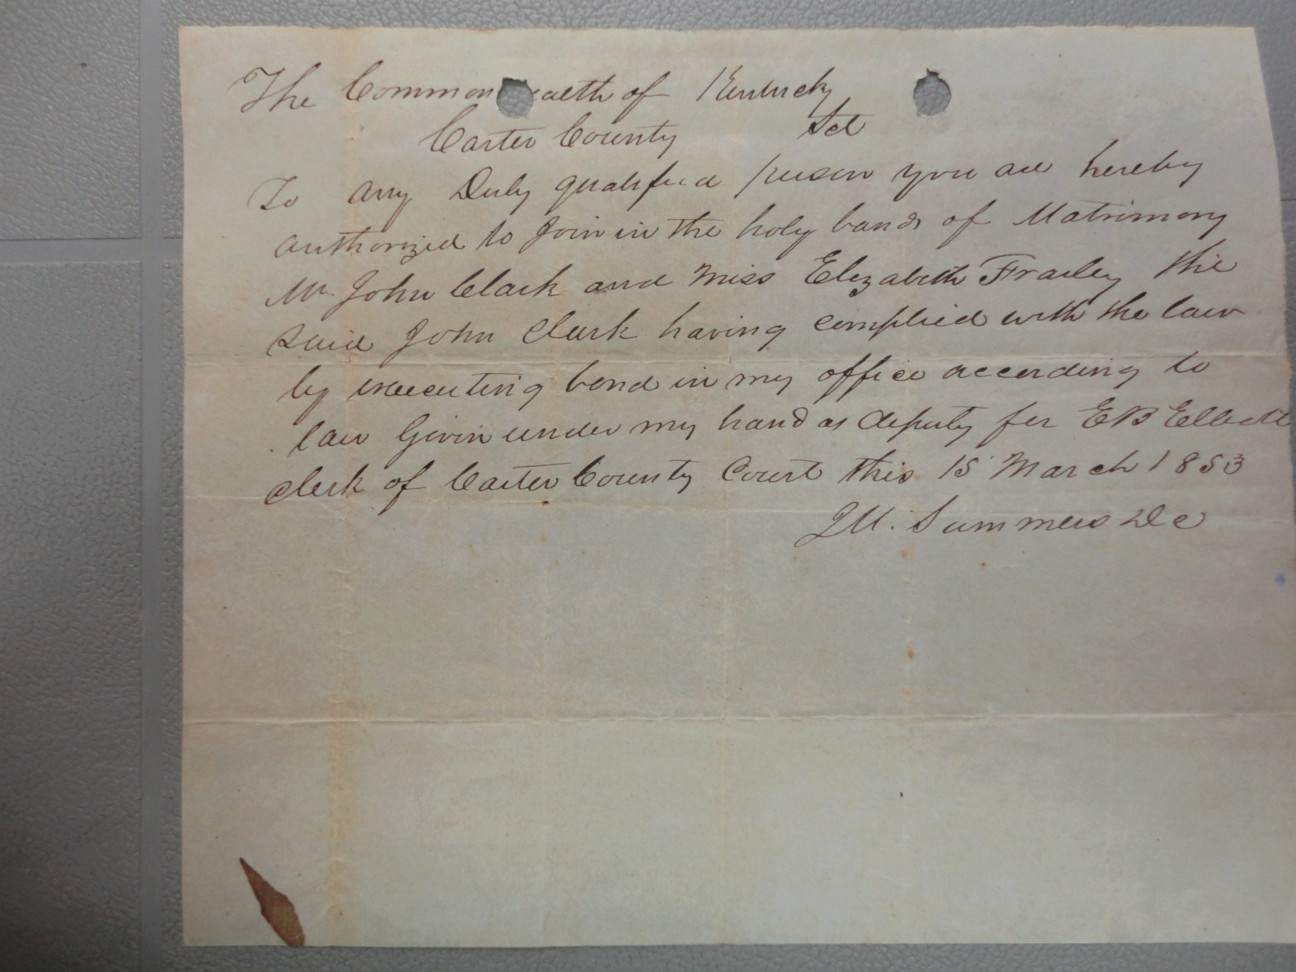 The Common ealth of Kentucky
Carter County Sct
To any Duly qualified person you are hereby
authorized to Join in the holy bands of Matrimony
Mr. John Clark and Miss Elizabeth Frailey the
said John Clark having complied with the law
by executing bond in my office according to
law Given under my hand as deputy for E B Elliott
clerk of Carter County Court this 15 March 1853
Summers D c